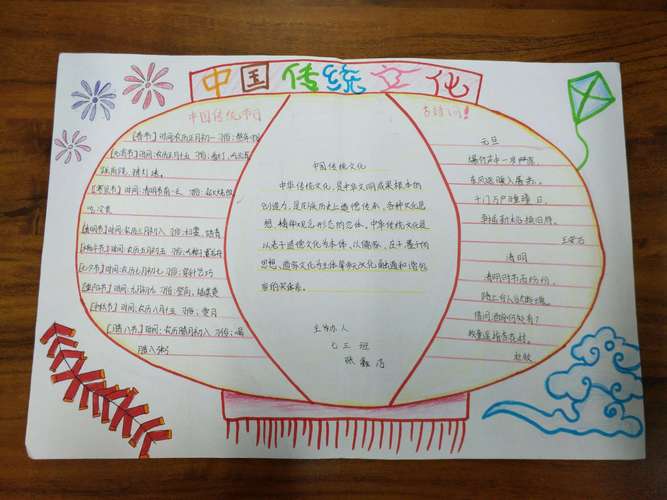 中国传统文化
中国传统节日
【春节】时间:农历正月初一 习俗:拜年
【元宵节】时间:农历正月十五 习俗:赏灯,吃元宵
猜灯谜
【寒食节】时间:清明节前一天
吃冷食
【清明节】时间:农历三月初八 习俗:扫墓、踏青
【端午节】时间:农历五月初五 习俗:
【七夕节】时间:农历七月初七 习俗:穿针乞巧
【重阳节】时间:九月初九 习俗:登高、插茱萸
【中秋节】时间:农历八月十五 习俗:赏月
【腊八节】时间:农历腊月初八 习俗:喝
腊八粥
中国传统文化
中华传统文化,是中华文明成果根本的
创造力,是民族历史上道德传承、各种文化思
想、精神观念形态的总体。中华传统文化是
以老子道德文化为本体、以儒家、庄子、墨子的
思想、道家文化为主体等多元文化融通和谐包
容的实体系。
主办人
七三班
张
古诗词!
元旦
爆竹声中一岁除,
东风送暖入屠苏。
千门万户曈曈日,
王安石
清明
清明时节雨纷纷,
路上行人欲断魂。
借问酒家何处有?
杜牧